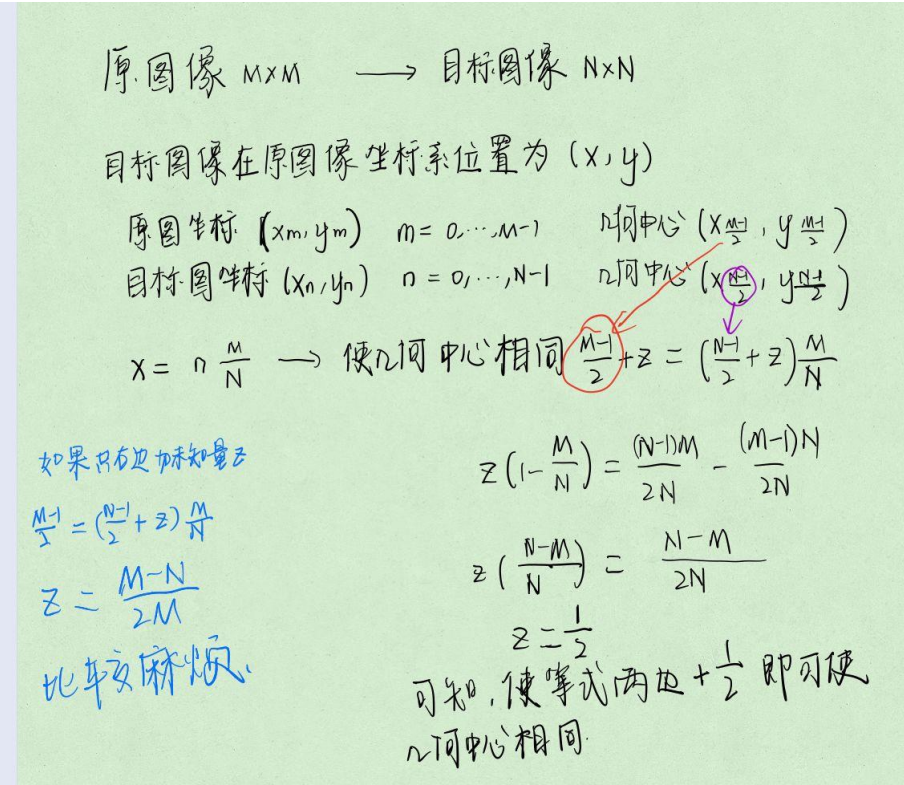 原图像 M×M ⟶ 目标图像 N×N
目标图像在原图像坐标系位置为 (x, y)
原图坐标 (xm, ym) m = 0,…,M-1 几何中心 (x_{\frac{M-1}{2}}, y_{\frac{M-1}{2}})
目标图坐标 (xn, yn) n = 0,…,N-1 几何中心 (x_{\frac{N-1}{2}}, y_{\frac{N-1}{2}})
x = n \frac{M}{N} ⟶ 使几何中心相同 \frac{M-1}{2} + z = (\frac{N-1}{2} + z)\frac{M}{N}
z(1 - \frac{M}{N}) = \frac{(N-1)M}{2N} - \frac{(M-1)N}{2N}
z(\frac{N-M}{N}) = \frac{N-M}{2N}
z = \frac{1}{2}
可知,使等式两边 + \frac{1}{2} 即可使
几何中心相同.
如果只右边加未知量z
\frac{M-1}{2} = (\frac{N-1}{2} + z)\frac{M}{N}
z = \frac{M-N}{2M}
比较麻烦.